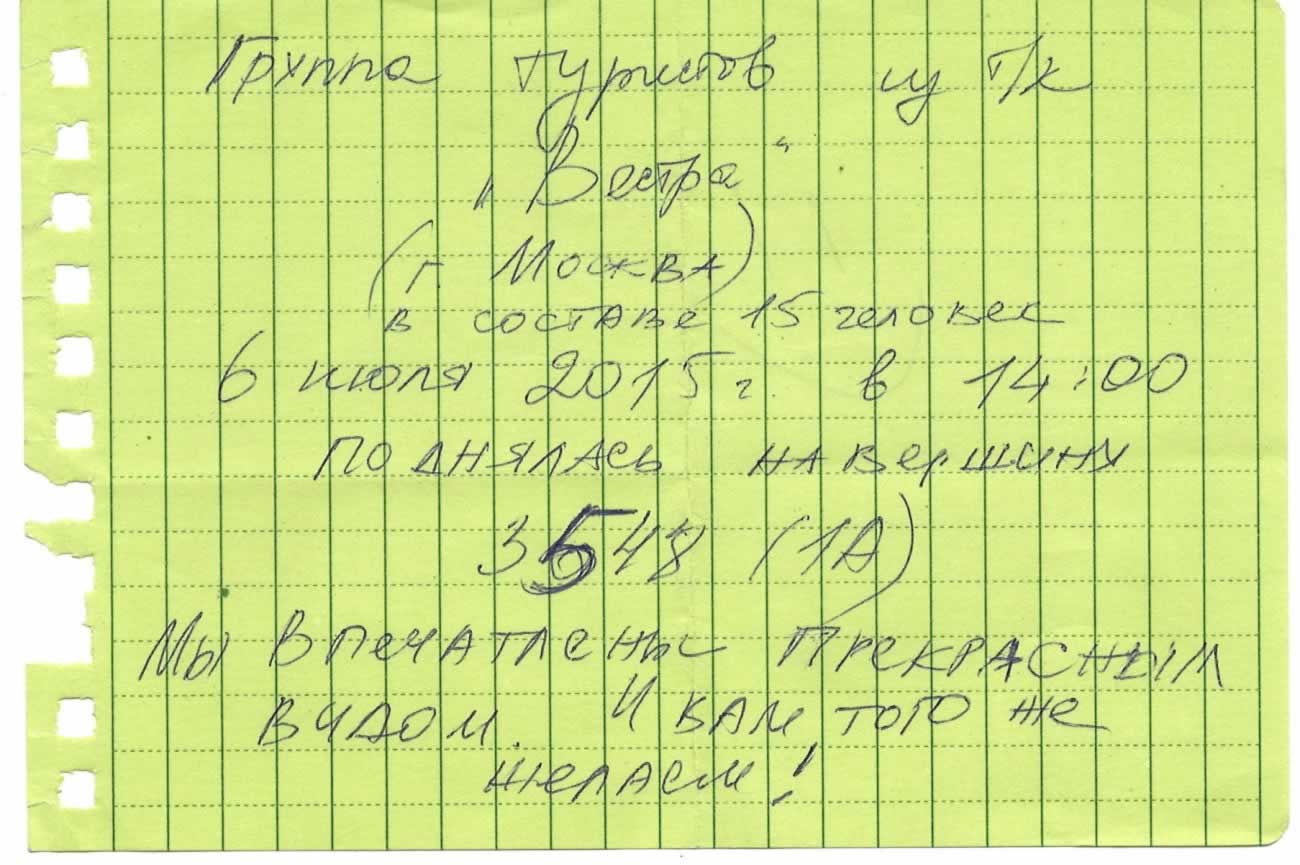 Группа туристов из т/к
„Вестра“
(г. Москва)
в составе 15 человек
6 июля 2015 г. в 14:00
поднялась на вершину
3548 (1А)
Мы впечатлены прекрасным
видом. И вам того же
желаем!